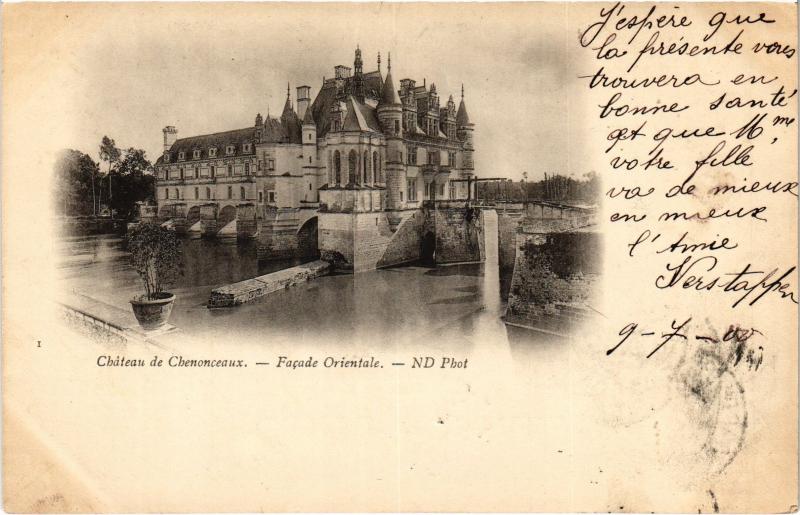 J'espère que
la présente vous
trouvera en
bonne santé
et que Mme
votre fille
va de mieux
en mieux
l'Amie
Verstappen
9-7-00
1
Château de Chenonceaux. — Façade Orientale. — ND Phot